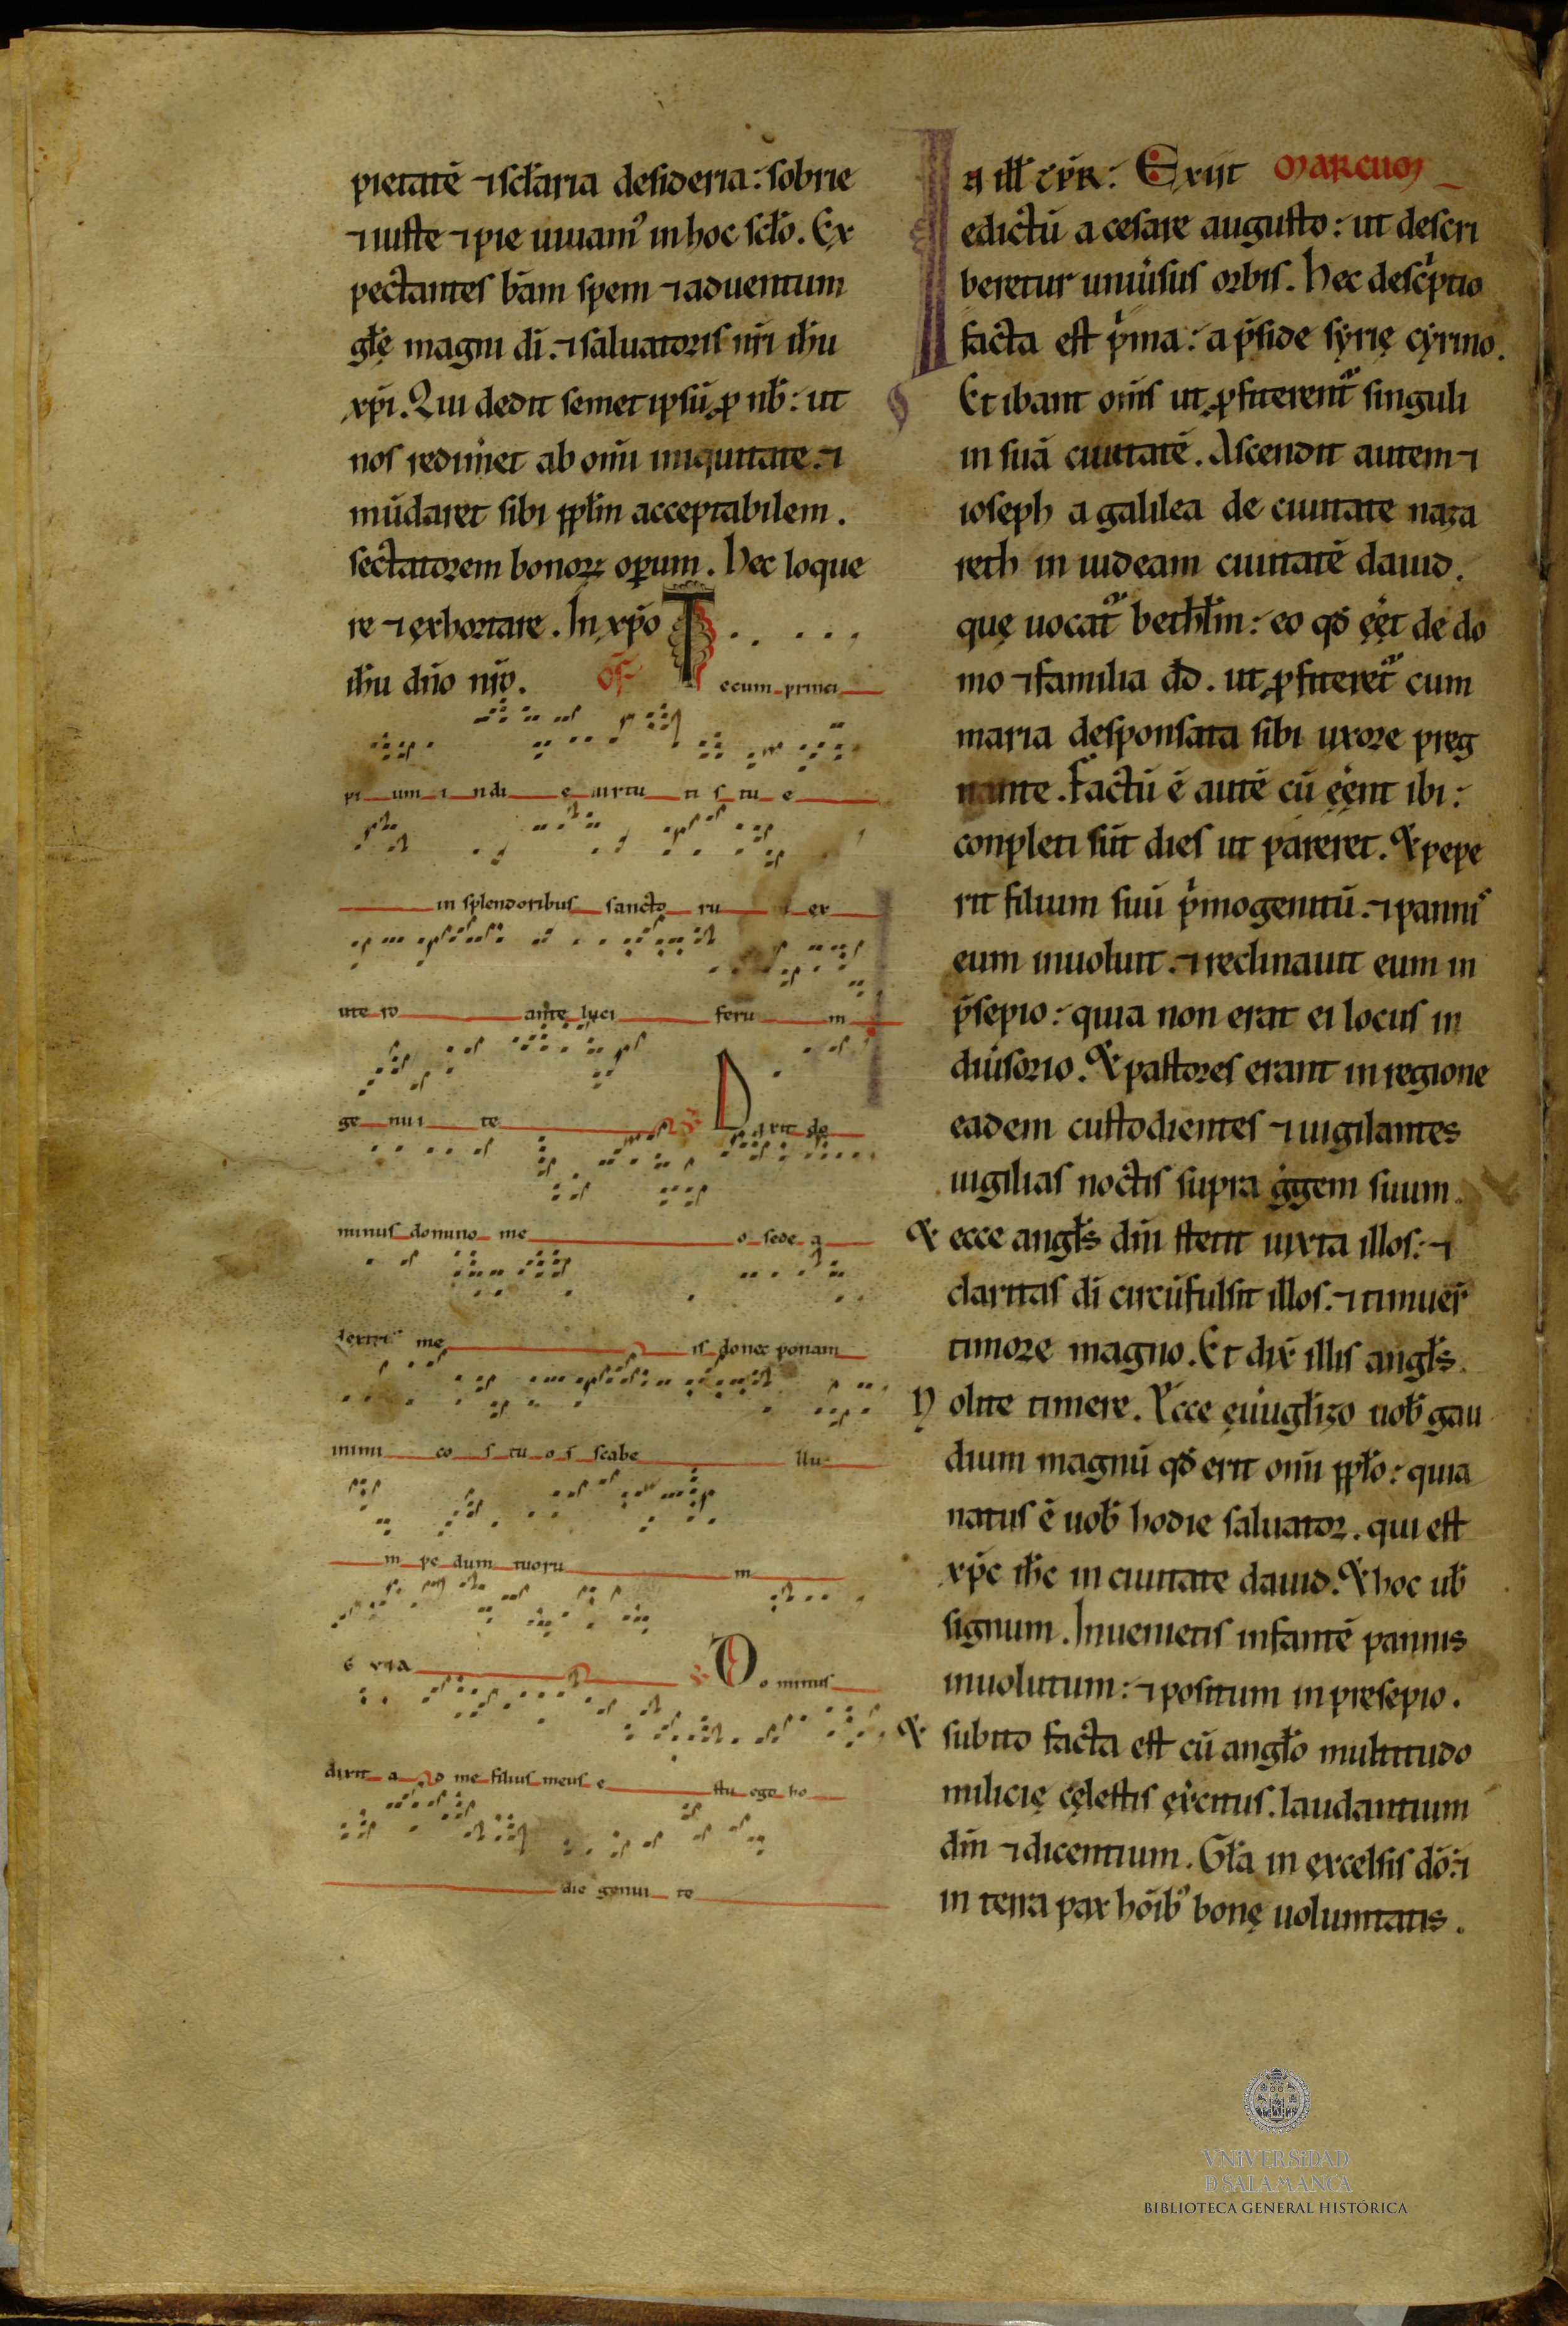 pietatē ⁊ sc̄laria desideria: sobrie
⁊ iuste ⁊ pie uiuam᷒ in hoc sc̄lo. Ex
pectantes bām spem ⁊ aduentum
gl̄ę magni dī. ⁊ saluatoris nr̄i ih̄u
xp̄i. Qui dedit semet ipsū ꝓ nb̄: ut
nos redim̄et ab om̄i iniquitate. ⁊
mūdaret sibi ppl̄m acceptabilem.
sectatorem bonoꝝ oꝑum. Hec loque
re ⁊ exhortare. In xp̄o
ih̄u dn̄o nr̄o. Of
Tecum princi
pi um i n di e uirtu ti s tu e
in splendoribus sancto ru ex
ute ro ante luci feru m
ge nu i te Dixit do
minus domino me o sede a
dextris me is donec ponam
inimi co s tu o s scabe llu
m pe dum tuoru m
Dominus
dixit a d me filius meus e s tu ego ho
die genui te
In ill̄ tp̄r: Exiit MARCUM
edictū a cesare augusto: ut descri
beretur uniūsus orbis. Hec desc̄ptio
facta est p̄ma: a p̄side syrię cyrino.
Et ibant om̄s ut ꝓfiterent᷑ singuli
in suā ciuitatē. Ascendit autem ⁊
ioseph a galilea de ciuitate naza
reth in iudeam ciuitatē dauid.
quę uocat᷑ bethl̄m: eo qđ eēt de do
mo ⁊ familia dd̄. ut ꝓfiteret᷑ cum
maria desponsata sibi uxore preg
nante. Factū ē autē cū eēnt ibi:
conpleti sūt dies ut pareret. Et pepe
rit filium suū p̄mogenitū. ⁊ pannis
eum inuoluit. ⁊ reclinauit eum in
p̄sepio: quia non erat ei locus in
diūsorio. Et pastores erant in regione
eadem custodientes ⁊ uigilantes
uigilias noctis supra ḡgem suum.
Et ecce angl̄s dn̄i stetit iuxta illos: ⁊
claritas dī circūfulsit illos. ⁊ timuer̄
timore magno. Et dix̄ illis angl̄s.
Nolite timere. Ecce eūugl̄izo uob̄ gau
dium magnū qđ erit om̄i ppl̄o: quia
natus ē uob̄ hodie saluator. qui est
xp̄c ih̄c in ciuitate dauid. Et hoc ub̄
signum. Inuenietis infantē pannis
inuolutum: ⁊ positum in presepio.
Et subito facta est cū angl̄o multitudo
milicię cęlestis ex̄citus. laudantium
dm̄ ⁊ dicentium. Gl̄a in excelsis dō: ⁊
in terra pax hōib᷒ bonę uoluntatis.
VNiVERSiDAD
D SALAMANCA
BIBLIOTECA GENERAL HISTÓRICA